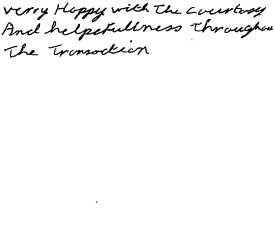 verry Happy with The Courtasy
And helpefullness Throughou
The Transaction